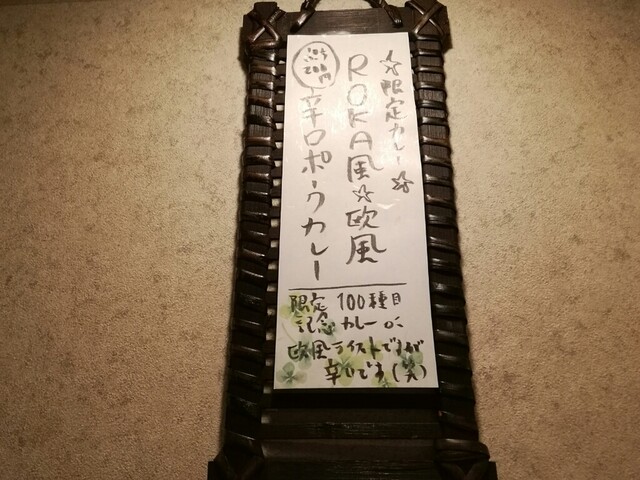 ☆限定カレー☆
ROKA風☆欧風
辛口ポークカレー
限定 100種目
記念 カレー
欧風テイストですが
辛いです(笑)